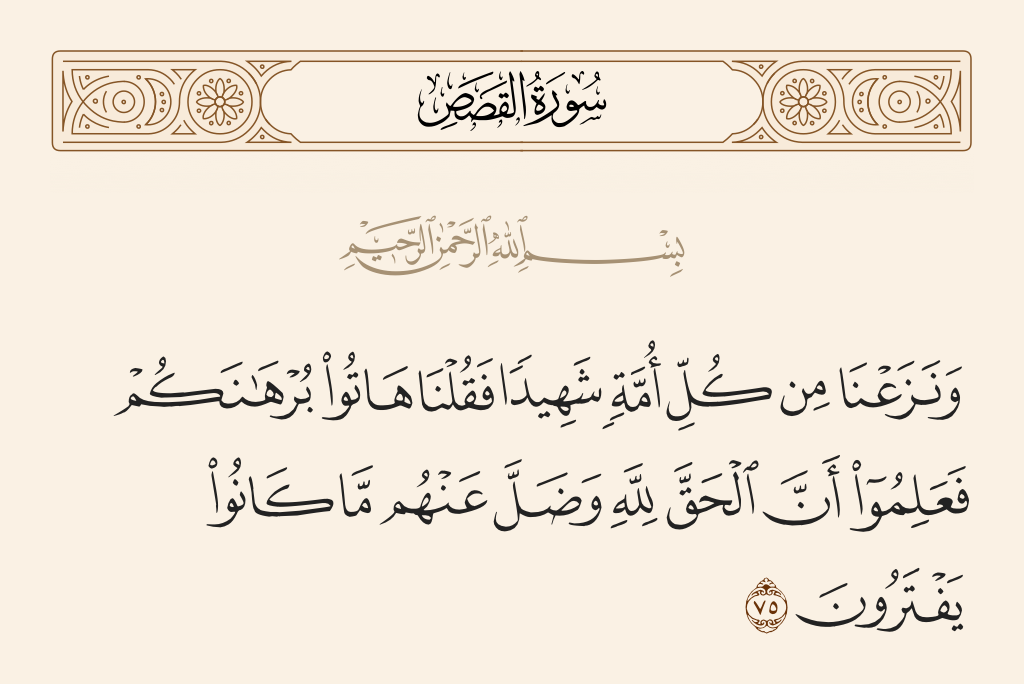 سُورَةُ القَصَصِ
بِسْمِ ٱللَّهِ ٱلرَّحْمَٰنِ ٱلرَّحِيمِ
وَنَزَعْنَا مِن كُلِّ أُمَّةٍ شَهِيدًا فَقُلْنَا هَاتُوا۟ بُرْهَٰنَكُمْ
فَعَلِمُوٓا۟ أَنَّ ٱلْحَقَّ لِلَّهِ وَضَلَّ عَنْهُم مَّا كَانُوا۟
يَفْتَرُونَ ٧٥